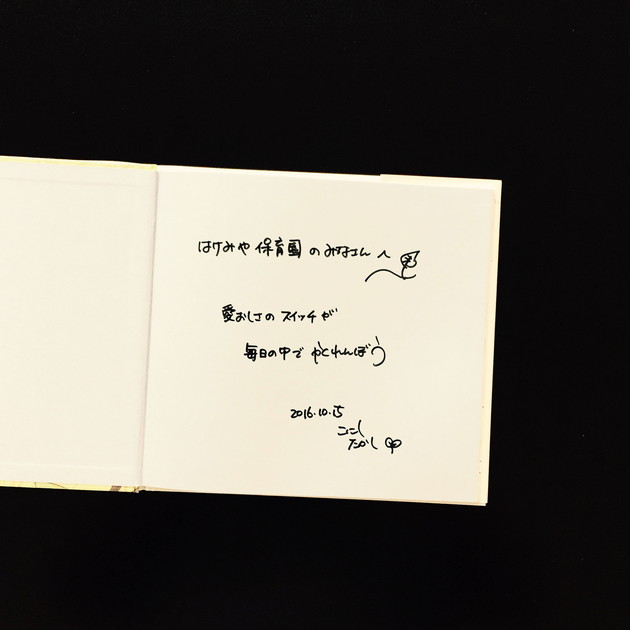 はけみや保育園のみなさんへ
愛おしさのスイッチが
毎日の中でかくれんぼう
2016.10.15
こにし
たかし